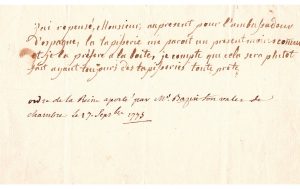 j'ai repensé, Monsieur, au present pour l'ambassadeur
d'espagne, la tapisserie me paroit un present moins commun
et je la préfére à la boîte, je compte que cela sera plutot
fait ayant toujours des tapisseries toute prête
ordre de la Reine aporté par Mr. Bazin son valet de
chambre le 17. Sepbre 1775